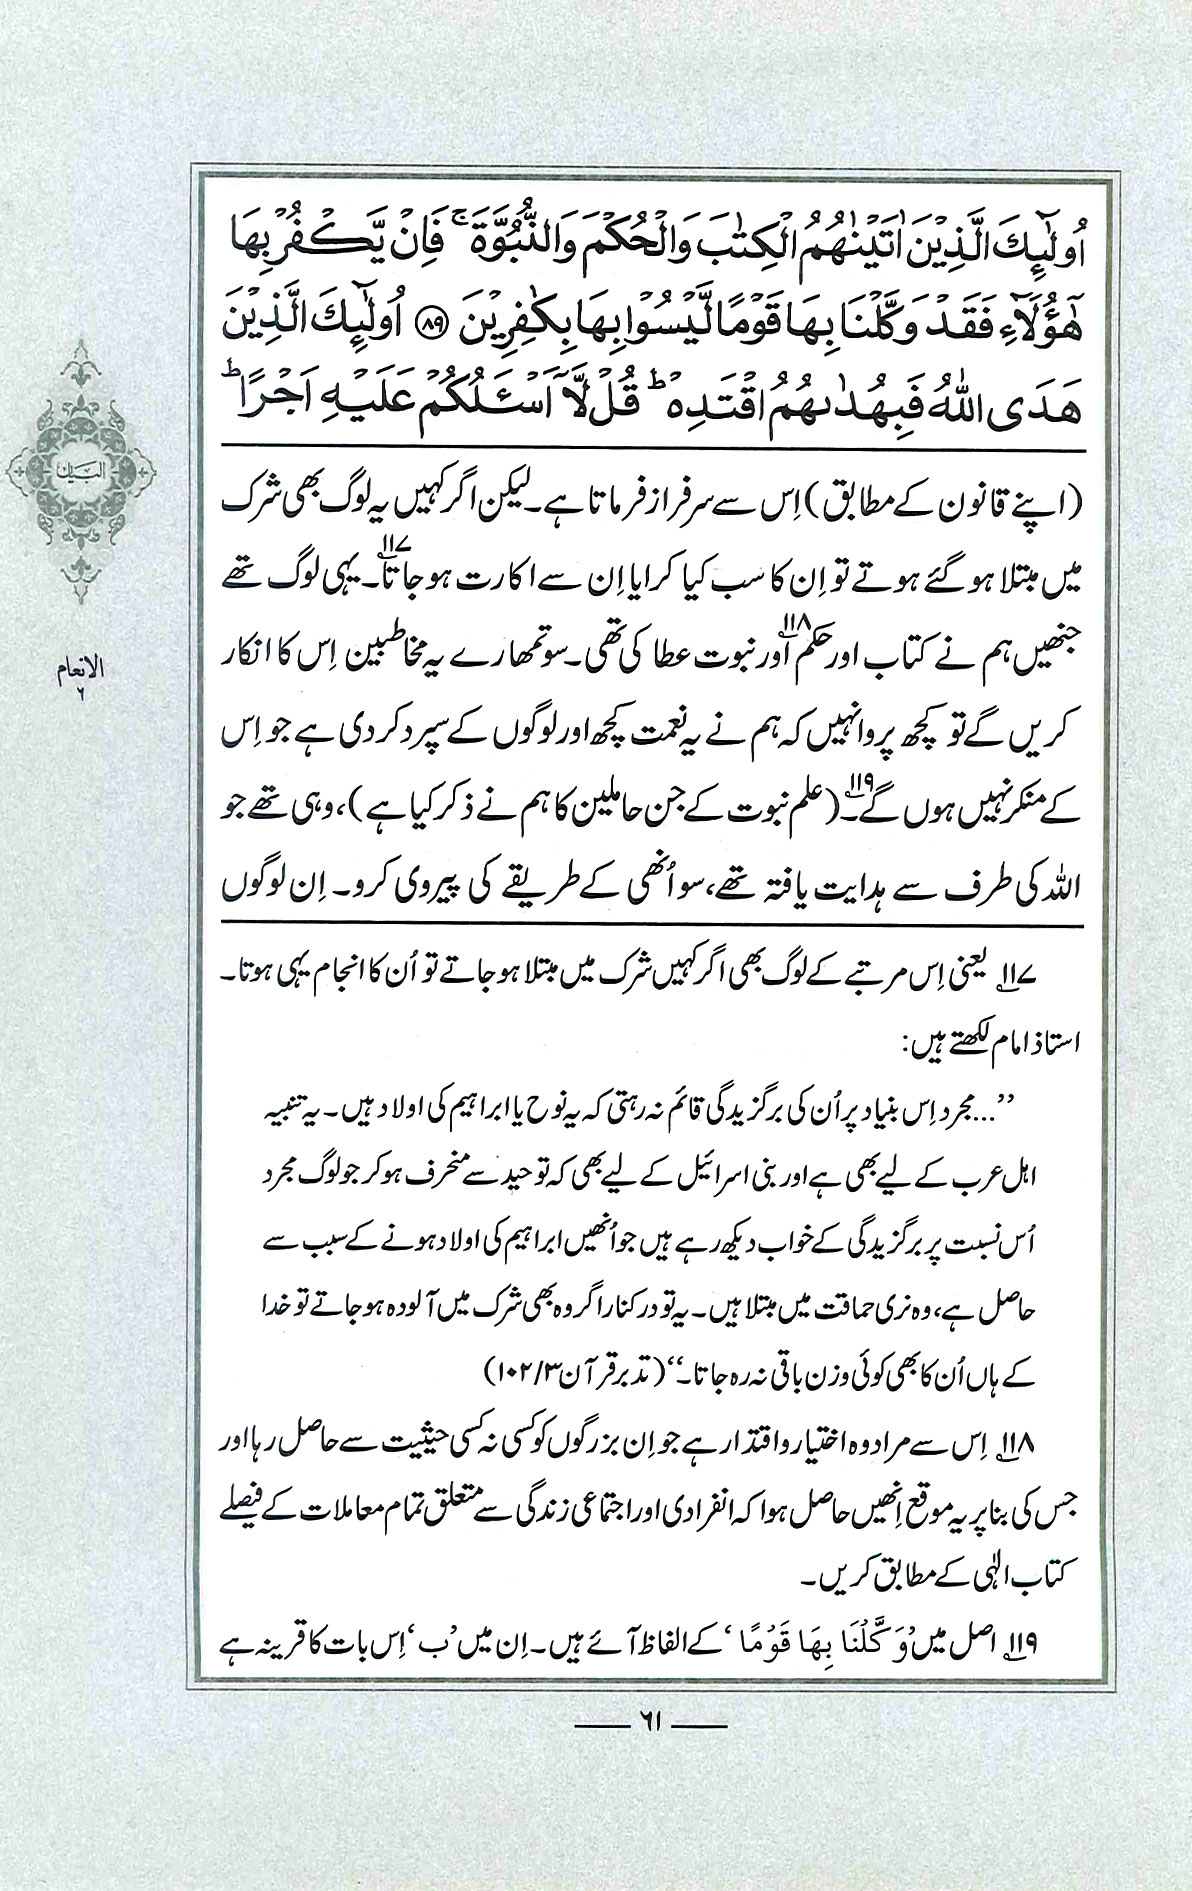 اُولٰٓئِكَ الَّذِيْنَ اٰتَيْنٰهُمُ الْكِتٰبَ وَالْحُكْمَ وَالنُّبُوَّةَ ۚ فَاِنْ يَّكْفُرْ بِهَا
هٰٓؤُلَآءِ فَقَدْ وَكَّلْنَا بِهَا قَوْمًا لَّيْسُوْا بِهَا بِكٰفِرِيْنَ ﴿۸۹﴾ اُولٰٓئِكَ الَّذِيْنَ
هَدَى اللّٰهُ فَبِهُدٰىهُمُ اقْتَدِهْ ؕ قُلْ لَّآ اَسْـَٔلُكُمْ عَلَيْهِ اَجْرًا ؕ
(اپنے قانون کے مطابق) اِس سے سرفراز فرماتا ہے۔ لیکن اگر کہیں یہ لوگ بھی شرک
میں مبتلا ہو گئے ہوتے تو اِن کا سب کیا کرایا اِن سے اکارت ہو جاتا۱۱۷۔ یہی لوگ تھے
جنھیں ہم نے کتاب اور حکم۱۱۸ اور نبوت عطا کی تھی۔ سو تمھارے یہ مخاطبین اِس کا انکار
کریں گے تو کچھ پروا نہیں کہ ہم نے یہ نعمت کچھ اور لوگوں کے سپرد کر دی ہے جو اِس
کے منکر نہیں ہوں گے۱۱۹۔ (علم نبوت کے جن حاملین کا ہم نے ذکر کیا ہے)، وہی تھے جو
اللہ کی طرف سے ہدایت یافتہ تھے، سو اُنھی کے طریقے کی پیروی کرو۔ اِن لوگوں
۱۱۷ یعنی اِس مرتبے کے لوگ بھی اگر کہیں شرک میں مبتلا ہو جاتے تو اُن کا انجام یہی ہوتا۔
استاذ امام لکھتے ہیں:
’’...مجرد اِس بنیاد پر اُن کی برگزیدگی قائم نہ رہتی کہ یہ نوح یا ابراہیم کی اولاد ہیں۔ یہ تنبیہ
اہل عرب کے لیے بھی ہے اور بنی اسرائیل کے لیے بھی کہ توحید سے منحرف ہو کر جو لوگ مجرد
اُس نسبت پر برگزیدگی کے خواب دیکھ رہے ہیں جو اُنھیں ابراہیم کی اولاد ہونے کے سبب سے
حاصل ہے، وہ نری حماقت میں مبتلا ہیں۔ یہ تو درکنار اگر وہ بھی شرک میں آلودہ ہو جاتے تو خدا
کے ہاں اُن کا بھی کوئی وزن باقی نہ رہ جاتا۔‘‘ (تدبر قرآن ۱۰۲/۳)
۱۱۸ اِس سے مراد وہ اختیار و اقتدار ہے جو اِن بزرگوں کو کسی نہ کسی حیثیت سے حاصل رہا اور
جس کی بنا پر یہ موقع اِنھیں حاصل ہوا کہ انفرادی اور اجتماعی زندگی سے متعلق تمام معاملات کے فیصلے
کتاب الٰہی کے مطابق کریں۔
۱۱۹ اصل میں ’وَكَّلْنَا بِهَا قَوْمًا‘ کے الفاظ آئے ہیں۔ اِن میں ’ب‘ اِس بات کا قرینہ ہے
۶۱
البیان
الانعام
۶